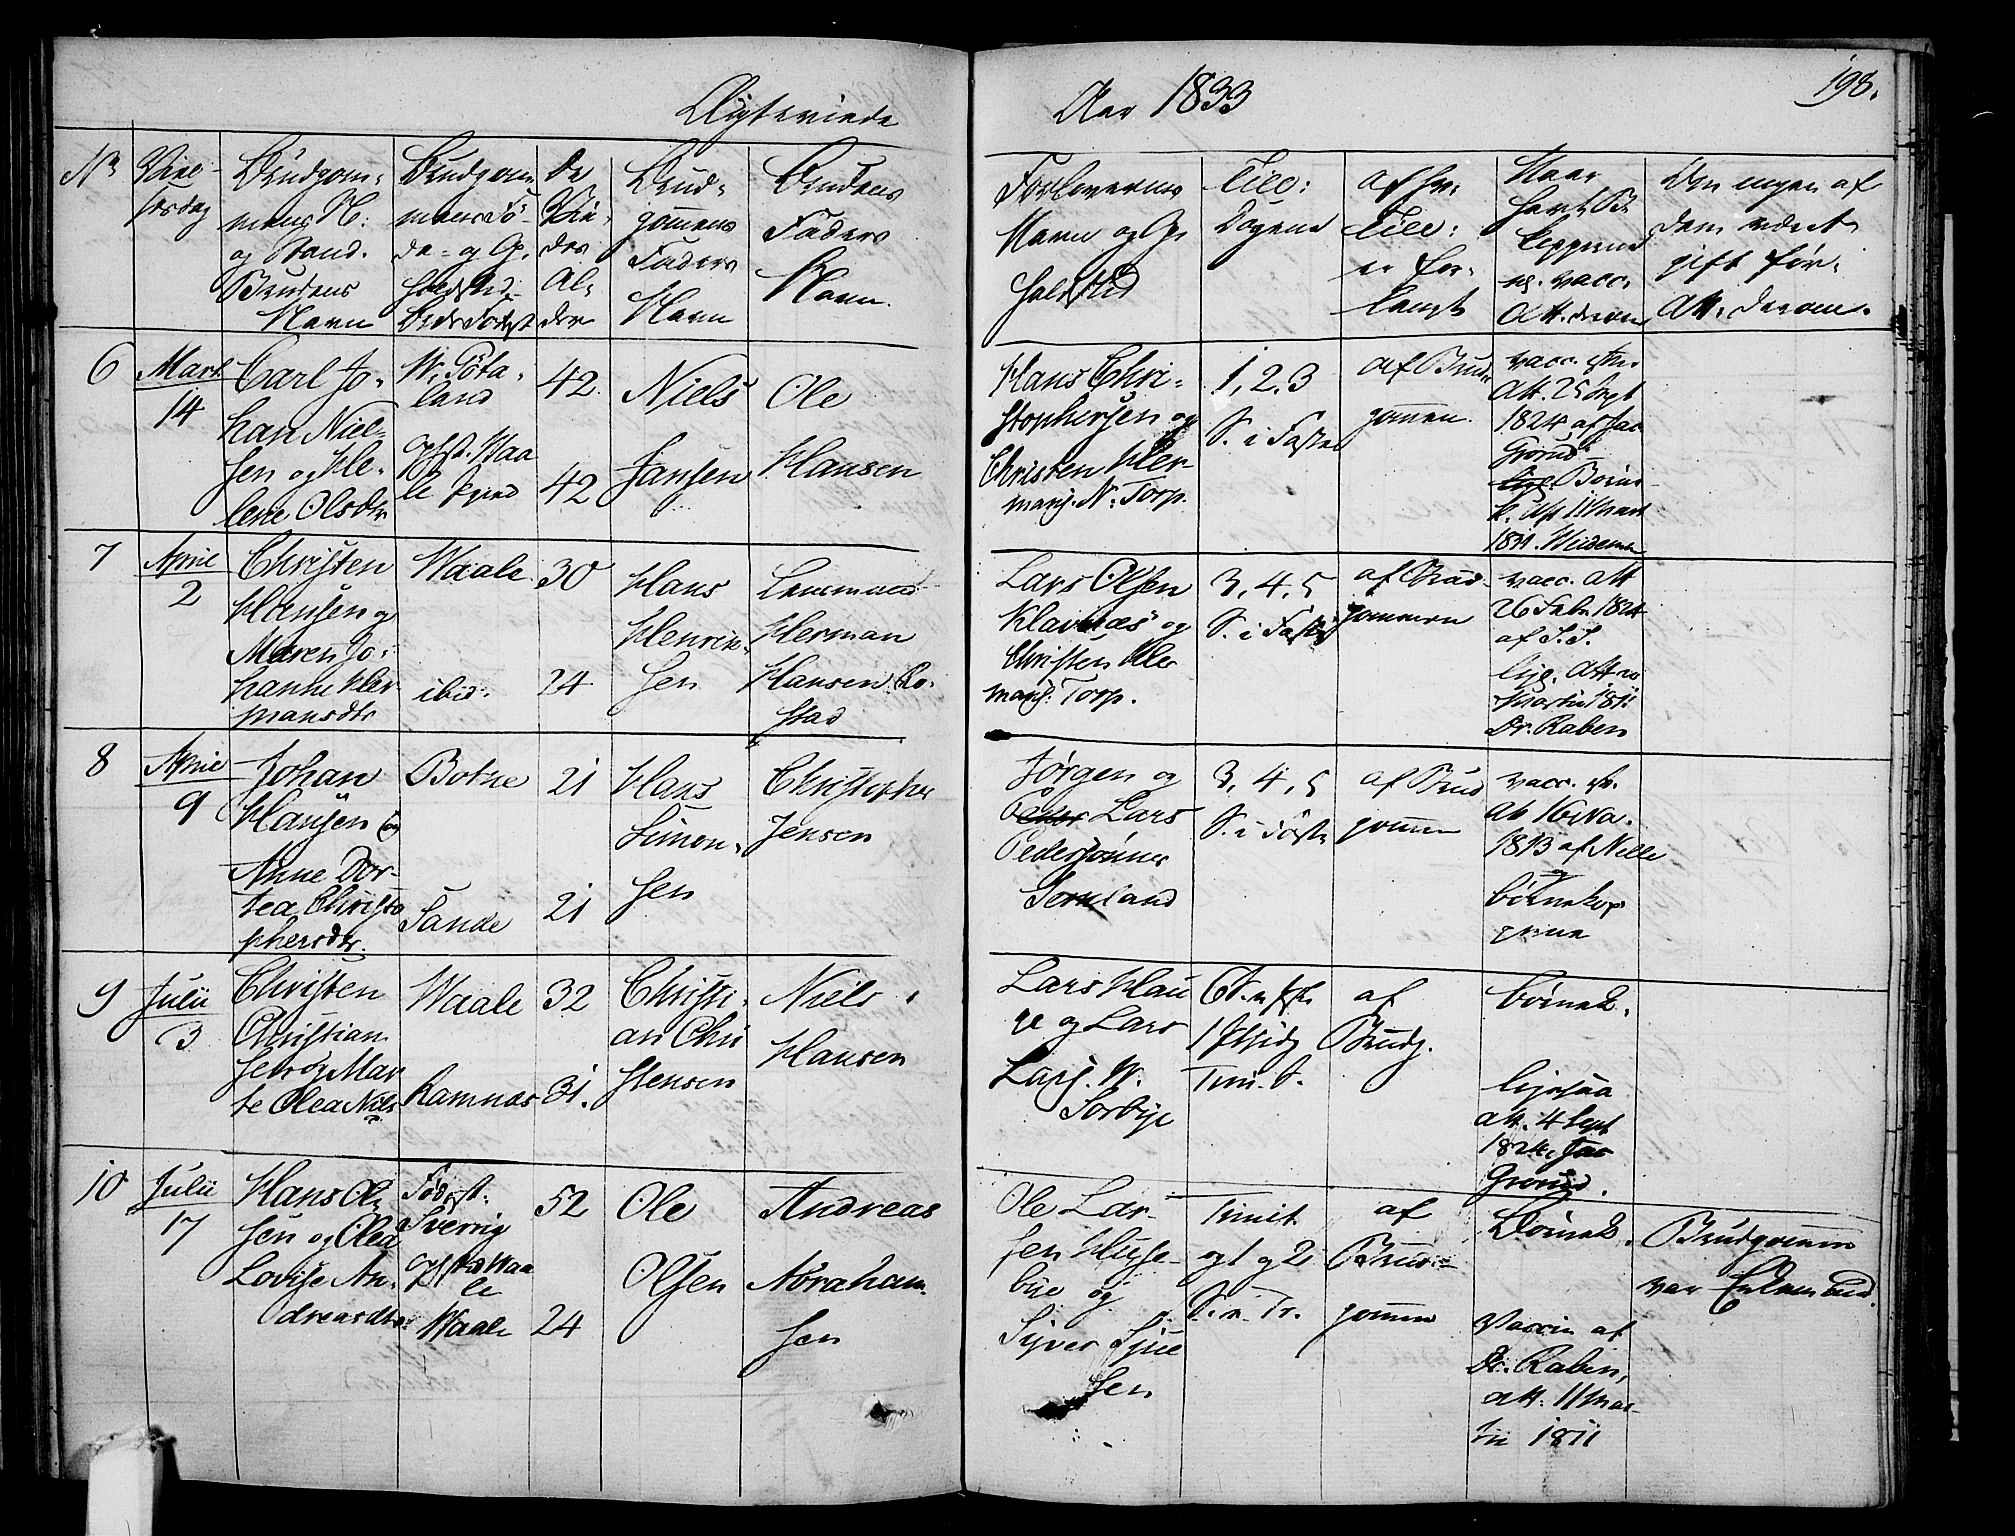 Ægteviede
Aar 1833
198.
No
Viel-
sesdag
Brudgom-
mens N:
og Stand.
Brudens
Navn
Brudgom
mens Fø-
de- og Op
holdsted
De
Vie-
des
Al-
der
Brud-
gommens
Faders
Navn
Brudens
Faders
Navn.
Forlovernes
Navn og Op
holdsted
Till:
Dagene
af hvem
Till:
er for-
langt
Naar
havt B
kopperne
el. vacc.
Att. derom
Om nogen af
dem været
gift før,
Att. derom.
6
Mart
14
Carl Jo-
han Niel-
sen og He-
lene Olsdtr
W. Göta-
land
Waa
le
42
42
Niels
Jansen
Ole
Hansen
Hans Chri-
stophersen og
Christen Her
mans. N. Torp.
1, 2, 3
S. i Faste
af Brud
gommen.
vacc.
Att. 25 Sept
1824 af Jac
Grorud
11 Mart
1811.
7
April
2
Christen
Hansen og
Maren Jo-
hanne Her
mansdtr
Waale
ibid:
30
24
Hans
Henrik-
sen
Lensmand
Herman
Hansen Ro-
stad
Lars Olsen
Klavnæs og
Christen Her
mans. Torp.
3, 4, 5
S. i Faste
af Brud-
gommen
vacc. att
26 Febr 1824
af S. S.
lige. Att 10
Martii 1811
Dr. Raben
8
April
9
Johan
Hansen og
Anne Dor-
tea Christo
phersdtr.
Botne
Sande
21
21
Hans
Simon-
sen
Christopher
Jensen
Jørgen og
Lars
Pedersønner
3, 4, 5
S. i Faste
af Brud
gommen
vacc.
1813 af
9
Julii
3
Christen
Christian
sen og Mar
te Olea Niels
Waale
Ramnæs
32
31.
Christi-
an Chri
stensen
Niels
Hansen
Lars Hau
ge og Lars
Lars. W.
Sørbye
Trin. S.
af
Brudg.
børnek.
ligesaa
att. 4 Sept
1824. Jac
Grorud.
10
Julii
17
Hans Ol-
sen og Olea
Lovise An-
dreasdtr
Fødest.
Sverrig
Waa
le
Waale
52
24
Ole
Olsen
Andreas
Abraham-
sen
Ole Lar-
sen Huse-
bye og
Syver Syver
sen
Trinit
og 1 g 2
S. e. Tr.
af
Brud-
gommen
Børnek.
Vaccin af
Dr. Raben,
att. 11 Mar-
tii 1811
Brudgommen
var Enkemand.